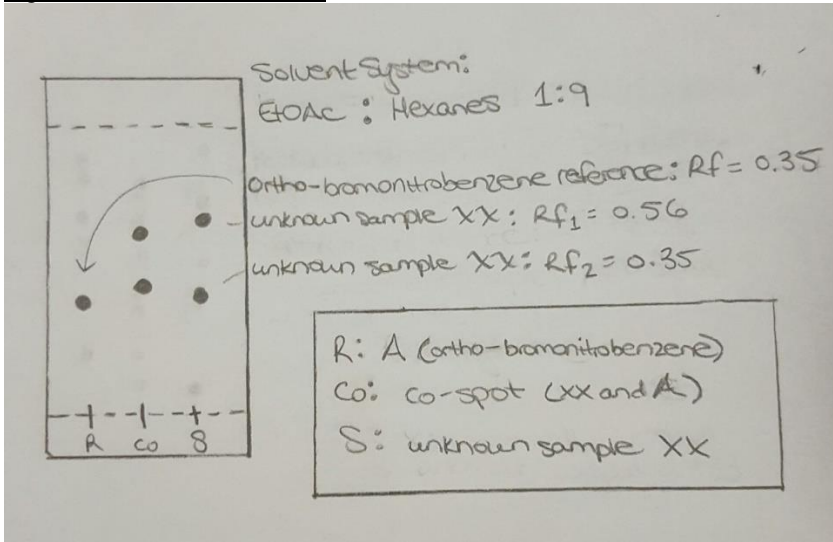 Solvent System:
EtOAc : Hexanes 1:9
Ortho-bromonitrobenzene reference: Rf = 0.35
unknown sample XX: Rf₁ = 0.56
unknown sample XX: Rf₂ = 0.35
R: A (ortho-bromonitrobenzene)
Co: co-spot (XX and A)
S: unknown sample XX
R CO S